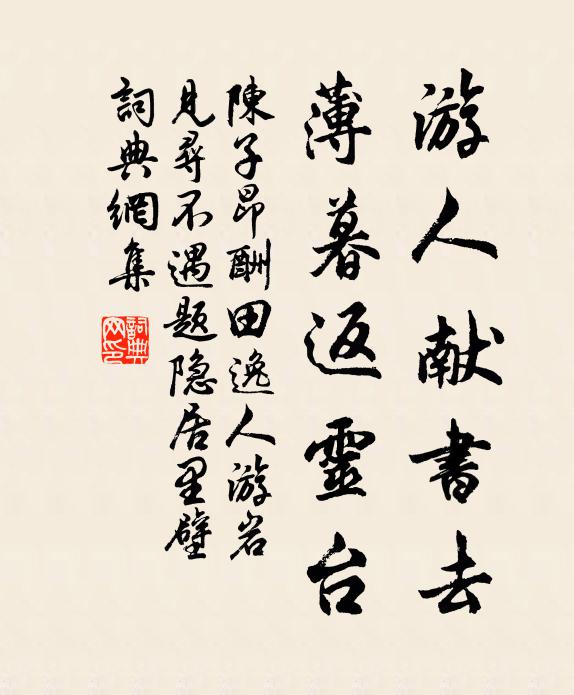 游人献書去
薄暮返靈台
陳子昂酬田逸人游岩
見尋不遇題隐居里壁
詞典網集
詞典网印